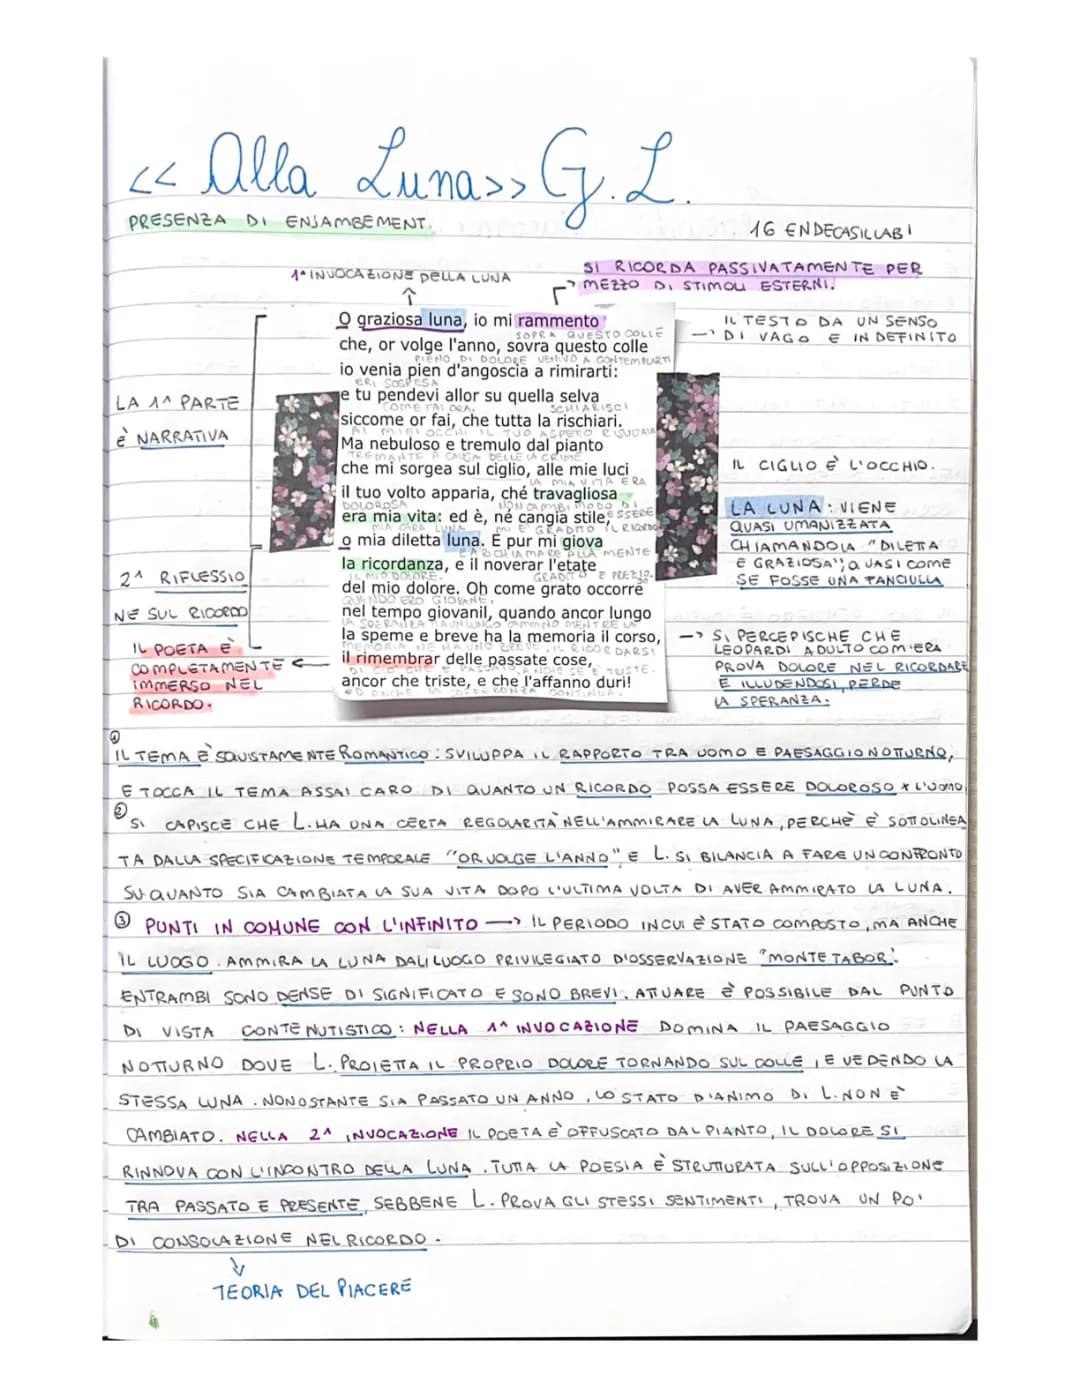 << Alla Luna>> G. L.
PRESENZA DI ENJAMBEMENT.
16 ENDECASILLABI
1ª INVOCAZIONE DELLA LUNA
SI RICORDA PASSIVATAMENTE PER
MEZZO DI STIMOLI ESTERNI.
O graziosa luna, io mi rammento
SOPRA QUESTO COLLE
che, or volge l'anno, sovra questo colle
PIENO DI DOLORE VENIVO A CONTEMPLARTI
io venia pien d'angoscia a rimirarti:
ERI SOSPESA
e tu pendevi allor su quella selva
COME FAI ORA. SCHIARISCI
siccome or fai, che tutta la rischiari.
AI MIEI OCCHI IL TUO ASPETO RISULTAVA
Ma nebuloso e tremulo dal pianto
TREMANTE A CAUSA DELLE LACRIME
che mi sorgea sul ciglio, alle mie luci
LA MIA VITA ERA
il tuo volto apparia, ché travagliosa
DOLOROSA NON CAMBI MODO DI
era mia vita: ed è, né cangia stile, ESSERE
MIA CARA LUNA. MI È GRADITO IL RICORDO
o mia diletta luna. E pur mi giova
E A RICHIAMARE ALLA MENTE
la ricordanza, e il noverar l'etate
IL MIO DOLORE. GRADITO E PREZIO.
del mio dolore. Oh come grato occorre
QUANDO ERO GIOVANE.
nel tempo giovanil, quando ancor lungo
LA SPERANZA HA UN LUNGO CAMMINO MENTRE LA
la speme e breve ha la memoria il corso,
MEMORIA NE HA UNO BREVE, IL RICORDARSI
il rimembrar delle passate cose,
DI CIÒ CHE È PASSATO, ANCHE SE È TRISTE.
ancor che triste, e che l'affanno duri!
ED ANCHE LA SOFFERENZA CONTINUA.
LA 1ª PARTE
È NARRATIVA
2ª RIFLESSIO
NE SUL RICORDO
IL POETA È
COMPLETAMENTE
IMMERSO NEL
RICORDO.
IL TESTO DA UN SENSO
DI VAGO E INDEFINITO
IL CIGLIO È L'OCCHIO.
LA LUNA: VIENE
QUASI UMANIZZATA
CHIAMANDOLA "DILETTA
E GRAZIOSA", QUASI COME
SE FOSSE UNA FANCIULLA
SI PERCEPISCHE CHE
LEOPARDI ADULTO COM'ERA
PROVA DOLORE NEL RICORDARE
E ILLUDENDOSI, PERDE
LA SPERANZA.
① IL TEMA È SQUISTAMENTE ROMANTICO: SVILUPPA IL RAPPORTO TRA UOMO E PAESAGGIO NOTTURNO,
E TOCCA IL TEMA ASSAI CARO DI QUANTO UN RICORDO POSSA ESSERE DOLOROSO X L'UOMO
② SI CAPISCE CHE L. HA UNA CERTA REGOLARITÀ NELL'AMMIRARE LA LUNA, PERCHÈ È SOTTOLINEA
TA DALLA SPECIFICAZIONE TEMPORALE "OR VOLGE L'ANNO" E L. SI BILANCIA A FARE UN CONFRONTO
SU QUANTO SIA CAMBIATA LA SUA VITA DOPO L'ULTIMA VOLTA DI AVER AMMIRATO LA LUNA.
③ PUNTI IN COMUNE CON L'INFINITO → IL PERIODO IN CUI È STATO COMPOSTO, MA ANCHE
IL LUOGO. AMMIRA LA LUNA DAL LUOGO PRIVILEGIATO D'OSSERVAZIONE "MONTE TABOR".
ENTRAMBI SONO DENSE DI SIGNIFICATO E SONO BREVI. ATTUARE È POSSIBILE DAL PUNTO
DI VISTA CONTENUTISTICO: NELLA 1ª INVOCAZIONE DOMINA IL PAESAGGIO
NOTTURNO DOVE L. PROIETTA IL PROPRIO DOLORE TORNANDO SUL COLLE, E VEDENDO LA
STESSA LUNA. NONOSTANTE SIA PASSATO UN ANNO, LO STATO D'ANIMO DI L. NON È
CAMBIATO. NELLA 2ª INVOCAZIONE IL POETA È OFFUSCATO DAL PIANTO, IL DOLORE SI
RINNOVA CON L'INCONTRO DELLA LUNA. TUTTA LA POESIA È STRUTTURATA SULL'OPPOSIZIONE
TRA PASSATO E PRESENTE, SEBBENE L. PROVA GLI STESSI SENTIMENTI, TROVA UN PO'
DI CONSOLAZIONE NEL RICORDO.
TEORIA DEL PIACERE